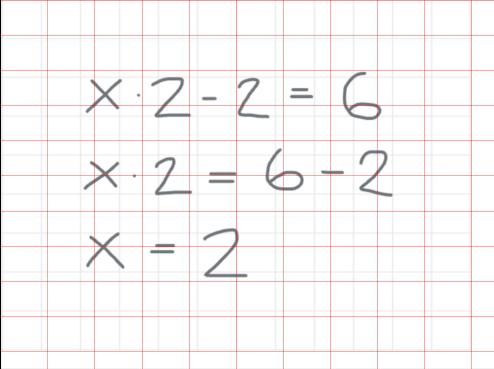 x · 2 - 2 = 6
x · 2 = 6 - 2
x = 2